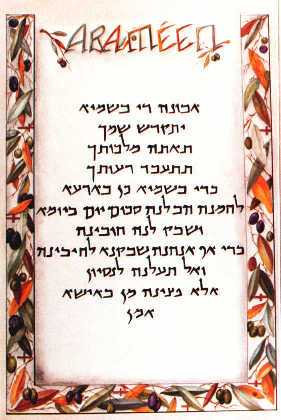 ARAMÉEN
אבונה די בשמיא
יתקדש שמך
תאתה מלכותך
תתעבד רעותך
כדי בשמיא כן בארעא
לחמנה הבלנה יום ביומא
ושבק לנה חובינה
כדי אף אנחנה שבקנא לחיבינה
ואל תעלנה לנסיון
אלא פצינה מן באישא
אמן